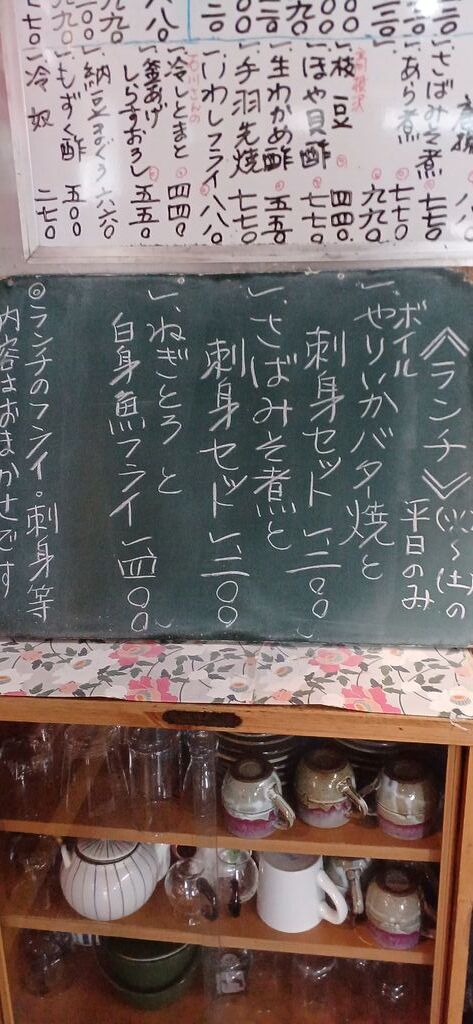 さばみそ煮 七七〇
あら煮 七七〇
九九〇
枝豆 四四〇
ほや貝酢 七七〇
生わかめ酢 五五〇
手羽先焼 七七〇
いわしフライ 八八〇
冷しとまと 四四〇
釜あげしらすおろし 五五〇
納豆まぐろ 六六〇
もずく酢 五〇〇
冷奴 二七〇
《ランチ》(火)〜(土)の
平日のみ
一、ボイル
やりいかバター焼と
刺身セット 一、二〇〇
一、さばみそ煮と
刺身セット 一、二〇〇
一、ねぎとろと
白身魚フライ 一、四〇〇
◎ランチのフライ・刺身等
内容はおまかせです